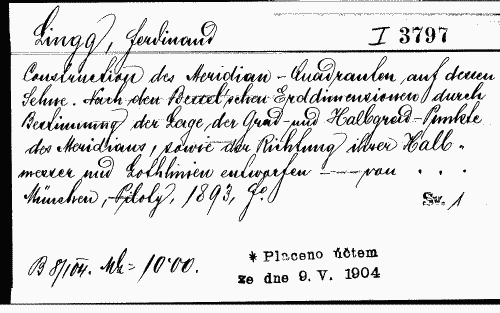 Lingg, Ferdinand
I 3797
Construction des Meridian-Quadranten auf dessen
Sehne. Nach den Bessel'schen Erddimensionen durch
Bestimmung der Lage der Grad- und Halbgrad-Punkte
des Meridians, sowie der Richtung ihrer Halb-
messer und Lothlinien entworfen — von . . .
München, Piloty, 1893, Fo.
Sv. 1
B 8/104. Mk = 10·00.
* Placeno účtem
ze dne 9. V. 1904